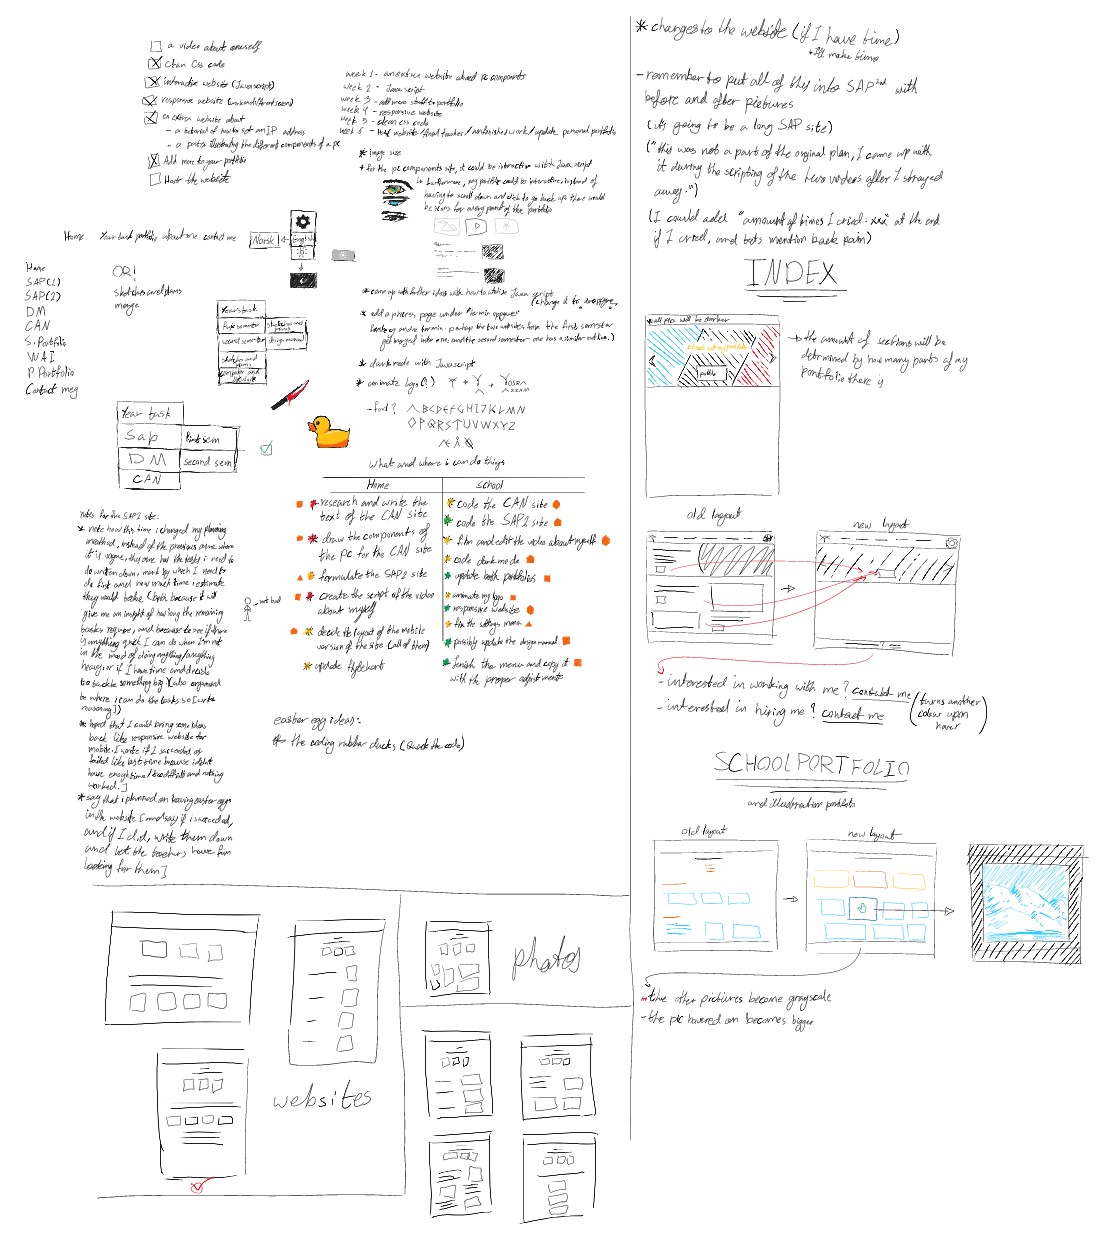 a video about oneself
clean Css code
interactive website (Javascript)
responsive website
an extra website about
- a tutorial of how to set an IP address
- a poster illustrating the different components of a pc
Add more to your portfolio
Host the website
week 1 - an extra website about pc components
week 2 - Javascript
week 3 - add more stuff to portfolio
week 4 - responsive website
week 5 - clean css code
week 6 - Host website / / unfinished work / update personal portfolio
* image size
+ for the pc components site, it could be interactive with Java script
↳ furthermore, my portfolio could be interactive, instead of
having to scroll down and click to go back up there would
be icons for every part of the portfolio
Home Your task portfolio about me contact me
Norsk ← English
Home
SAP(1)
SAP(2)
DM
CAN
S. Portfolio
WAI
P. Portfolio
Contact meg
OR!
sketches and plans
merge
Years task
first semester
second semester design manual
sketches and plans
* come up with further ideas with how to utilize Java script
* add a process page under
* dark mode with Javascript
* animate logo (!)
- font?
ABCDEFGHIJKLMN
OPQRSTUVWXYZ
ÆÅØ
Year task
Sap first sem
DM second sem
CAN
What and where i can do things
Home
school
* research and write the
text of the CAN site
* draw the components of
the pc for the CAN site
* formulate the SAP2 site
* create the script of the video
about myself
* decide the layout of the mobile
version of the site (all of them)
* update
* code the CAN site
* code the SAP2 site
* film and edit the video about myself
* code dark mode
* update both portfolios
* animate my logo
* responsive website
* fix the settings menu
* possibly update the design manual
* finish the menu and copy it
with the proper adjustments
notes for the SAP2 site:
* note how this time i changed my planning
method, instead of the previous one where
it is vague, this one has the tasks i need to
do written down, mark by which I need to
do first and how much time i estimate
they would take (both because it will
give me an insight of how long the remaining
tasks require, and because to see if there
is anything quick I can do when I'm not
in the mood of doing anything/anything
heavy or if I have time and decide
to tackle something big. (also
be where i can do the tasks so [write
reasoning])
* hoped that I could bring some ideas
back like responsive website for
mobile. [write if I succeeded or
failed like last time because i didnt
have enough time / and nothing
worked.]
* say that i planned on having easter eggs
in the website [and say if i succeeded,
and if I did, write them down
and let the teachers have fun
looking for them]
easter egg ideas:
* the coding rubber ducks (Quack the code)
websites
photos
* changes to the website (if I have time)
+ I'll make time
- remember to put all of this into SAP 2nd with
before and after pictures
(it's going to be a long SAP site)
("this was not a part of the original plan, I came up with
it during the scripting of the two videos after I strayed
away.")
(I could add "amount of times I cried: xx" at the end
if I cried, and lets mention back pain)
INDEX
* all pics will be darker
→ the amount of sections will be
determined by how many parts of my
portfolio there is
old layout
new layout
- interested in working with me? contact me
- interested in hiring me? contact me
(turns another
colour upon
hover)
SCHOOL PORTFOLIO
and illustration portfolio
old layout
new layout
- the other pictures become grayscale
- the pic hovered on becomes bigger